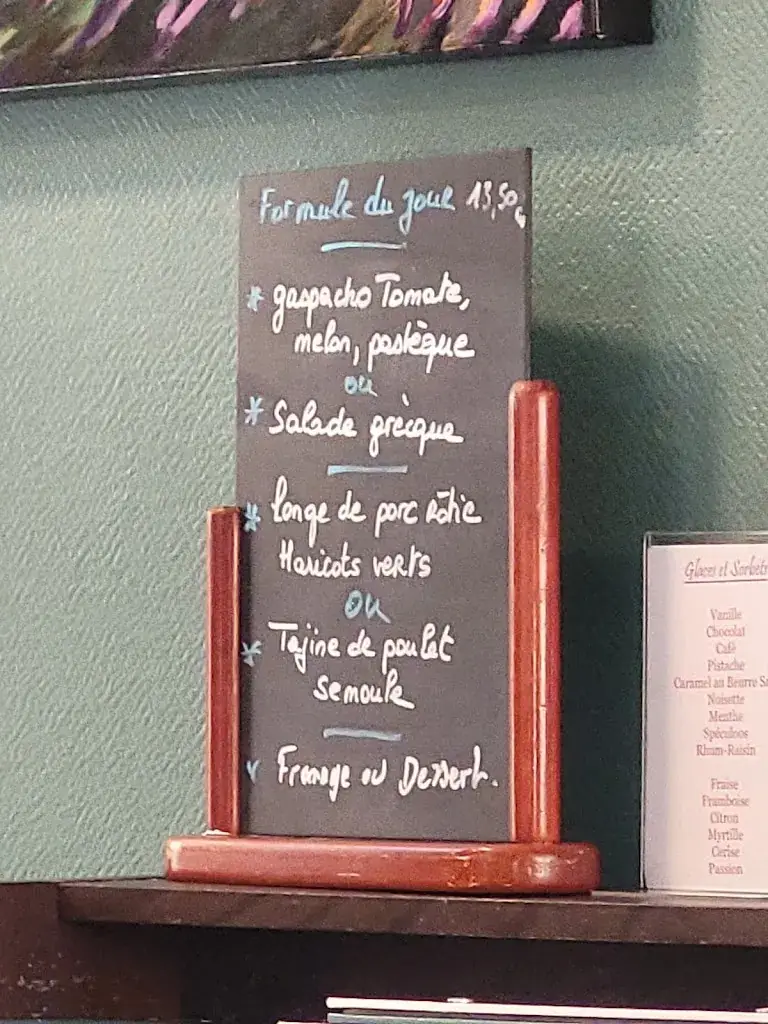 Formule du jour 13,50€
* gaspacho Tomate,
melon, pastèque
ou
* Salade grècque
* longe de porc rôtie
Haricots verts
ou
* Tajine de poulet
semoule
Fromage ou Dessert.
Glaces et Sorbets
Vanille
Chocolat
Café
Pistache
Caramel au Beurre
Noisette
Menthe
Spéculoos
Rhum-Raisin
Fraise
Framboise
Citron
Myrtille
Cerise
Passion